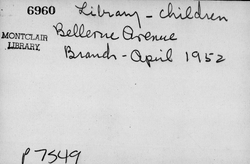 6960 Library - Children
MONTCLAIR LIBRARY.
Bellevue Avenue
Branch - April 1952
p 7549